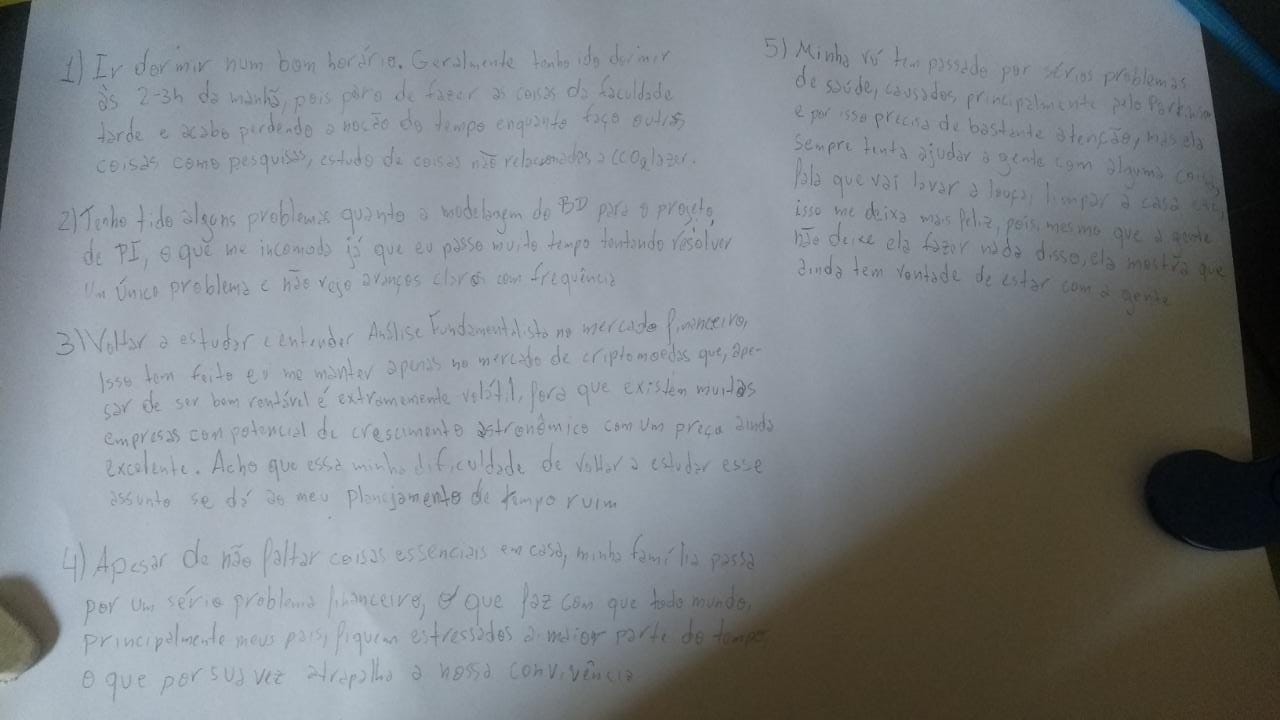 1) Ir dormir num bom horário. Geralmente tenho ido dormir
às 2-3h da manhã, pois paro de fazer as coisas da faculdade
tarde e acabo perdendo a noção do tempo enquanto faço outras
coisas como pesquisas, estudo de coisas não relacionadas a CCO e lazer.
2) Tenho tido alguns problemas quanto a modelagem do BD para o projeto
de PI, o que me incomoda já que eu passo muito tempo tentando resolver
um único problema e não vejo avanços claros com frequência
3) Voltar a estudar e entender Análise Fundamentalista no mercado financeiro,
Isso tem feito eu me manter apenas no mercado de criptomoedas que, ape-
sar de ser bem rentável é extramemente volátil, fora que existem muitas
empresas com potencial de crescimento astronômico com um preço ainda
excelente. Acho que essa minha dificuldade de voltar a estudar esse
assunto se dá ao meu planejamento de tempo ruim
4) Apesar de não faltar coisas essenciais em casa, minha família passa
por um sério problema financeiro, o que faz com que todo mundo,
principalmente meus pais, fiquem estressados a maior parte do tempo
o que por sua vez atrapalha a nossa convivência
5) Minha vó tem passado por sérios problemas
de saúde, causados principalmente pelo Parkinson
e por isso precisa de bastante atenção, mas ela
sempre tenta ajudar a gente com alguma coisa,
fala que vai lavar a louça, limpar a casa
isso me deixa mais feliz, pois, mesmo que a gente
não deixe ela fazer nada disso, ela mostra que
ainda tem vontade de estar com a gente